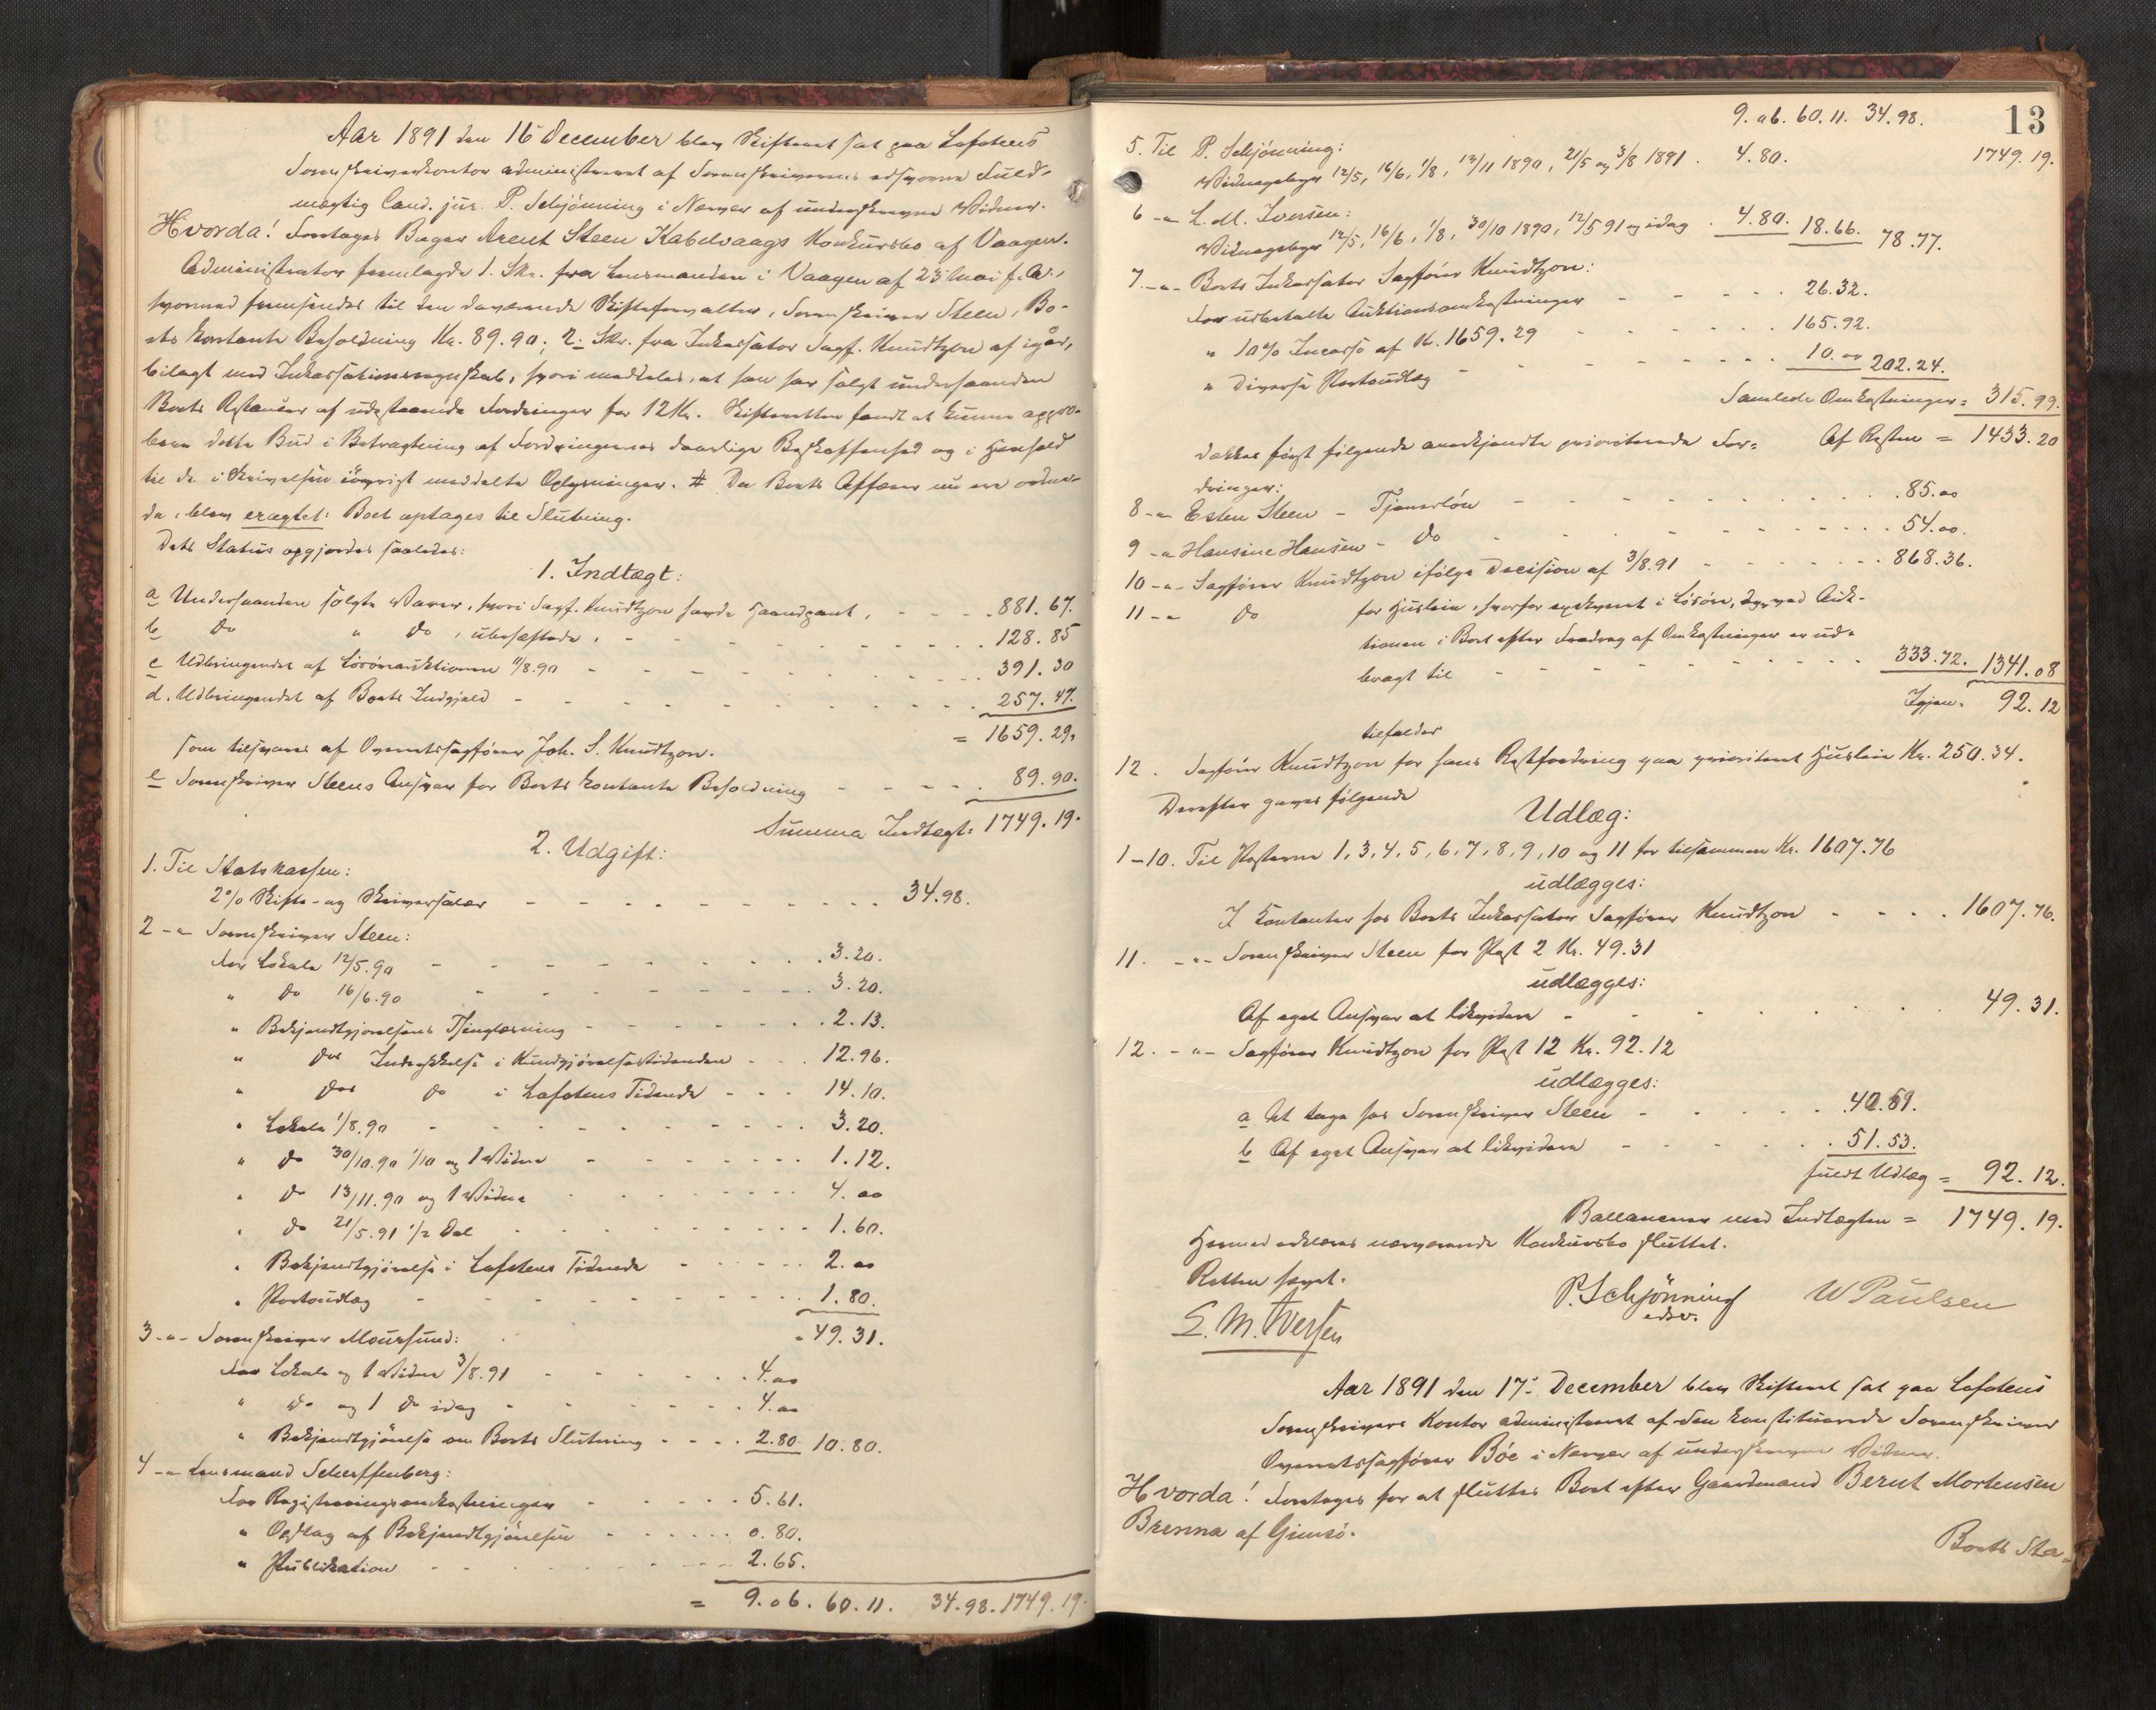 Aar 1891 den 16 December blev Skifteret sat paa Lofotens
Sorenskriverkontor administreret af Sorenskriverens edsvorne Fuld-
mægtig Cand. jur. P. Schjönning i Nærvær af underskrevne Vidner.
Hvorda! Foretoges Bager Arent Steen Kabelvaags Konkursbo af Vaagen.
Administrator fremlagde 1. Skr. fra Lensmanden i Vaagen af 23 Mai f. A.,
hvormed fremsendes til den daværende Skifteforvalter, Sorenskriver Steen, Bo-
ets kontante Beholdning Kr. 89.90; 2. Skr. fra Inkassator Sagf. Knudtzon af igår,
bilagt med Inkassationsregnskab, hvori meddeles, at han har solgt underhaanden
Boets Restancer af udestaaende Fordringer for 12 Kr. Skifteretten fandt at kunne appro-
bere dette Bud i Betragtning af Fordringernes daarlige Beskaffenhed og i Henhold
til de i Skrivelsen iøvrigt meddelte Oplysninger. # Da Boets Affærer nu ere ordne-
de, blev eragtet: Boet optages til Slutning.
Dets Status opgjordes saaledes:
1. Indtægt:
a Underhaanden solgte Varer, hvori Sagf. Knudtzon havde Haandpant, - - - 881.67.
b Do " Do, ubehæftede, - - - 128.85
c Udbringendet af Løsøreauktionen 11/8.90 - - - 391.30
d. Udbringendet af Boets Indgjæld - - - 257.47.
= 1659.29,
som tilsvares af Overretssagfører Joh. S. Knudtzon.
e Sorenskriver Steens Ansvar for Boets kontante Beholdning - - - 89.90.
Summa Indtægt = 1749.19.
2. Udgift:
1. Til Statskassen:
2% Skifte- og Skriversalær - - - 34.98.
2 -"- Sorenskriver Steen:
For Lokale 12/5.90 - - - 3.20.
" Do 16/6.90 - - - 3.20.
" Bekjendtgjørelsens Thinglæsning - - - 2.13.
" Des Indrykkelse i Kundgjørelsestidenden - - - 12.96.
" Des Do i Lofotens Tidende - - - 14.10.
" Lokale 1/8.90 - - - 3.20.
" Do 30/10.90 1/10 og 1 Vidne - - - 1.12.
" Do 13/11.90 og 1 Vidne - - - 4.00
" Do 21/5.91 1/2 Del - - - 1.60.
" Bekjendtgjørelse i Lofotens Tidende - - - 2.00
" Portoudlæg - - - 1.80.
3 -"- Sorenskriver Moursund: " 49.31.
For Lokale og 1 Vidne 3/8.91 - - - 4.00
" Do og 1 Do idag - - - 4.00
" Bekjendtgjörelse om Boets Slutning - - - 2.80 10.80.
4 -"- Lensmand Scherffenberg:
For Registreringsomkostninger - - - 5.61.
" Opslag af Bekjendtgjörelsen - - - 0.80.
" Publikation - - - 2.65.
= 9.06. 60.11. 34.98. 1749.19.
13
9.06. 60.11. 34.98.
5. Til P. Schjönning: 1749.19.
Vidnegebyr 12/5, 16/6, 1/8, 13/11 1890, 21/5 og 3/8 1891. 4.80.
6 -"- L. M. Iversen:
Vidnegebyr 12/5, 16/6, 1/8, 30/10 1890, 12/5 91 og idag. 4.80. 18.66. 78.77.
7 -"- Boets Inkassator Sagfører Knudtzon:
For udbetalte Auktionsomkostninger - - - 26.32.
" 10% Incasso af Kr. 1659.29 - - - 165.92.
" diverse Portoudlæg - - - 10.00 202.24.
Samlede Omkostninger = 315.99.
Af Resten = 1433.20
dækkes først følgende anerkjendte prioriterede For-
dringer:
8 -"- Esten Steen - Tjenerløn - - - 85.00
9 -"- Hansine Hansen - Do - - - 54.00.
10 -"- Sagfører Knudtzon ifølge Decision af 3/8.91 - - - 868.36.
11 -"- Do for Husleie, hvorfor exekveret i Løsøre, hvorved Auk-
tionen i Boet efter Fradrag af Omkostninger er ud-
bragt til - - - 333.72. 1341.08
Igjen = 92.12
tilfalder
12. Sagfører Knudtzon for hans Restfordring paa prioriteret Husleie Kr. 250.34.
Derefter gaves følgende
Udlæg:
1-10. Til Posterne 1, 3, 4, 5, 6, 7, 8, 9, 10 og 11 for tilsammen Kr. 1607.76
udlægges:
I Kontanter hos Boets Inkassator Sagfører Knudtzon - - - 1607.76.
11. -"- Sorenskriver Steen for Post 2 Kr. 49.31
udlægges:
Af eget Ansvar at likvidere - - - 49.31.
12. -"- Sagfører Knudtzon for Post 12 Kr. 92.12
udlægges:
a At tage hos Sorenskriver Steen - - - 40.59.
b Af eget Ansvar at likvidere - - - 51.53.
fuldt Udlæg = 92.12.
Ballancerer med Indtægten = 1749.19.
Hermed erklæres nærværende Konkursbo sluttet.
Retten hævet.
P. Schjönning W Paulsen
edsv.
L. M. Iversen
Aar 1891 den 17. December blev Skifteret sat paa Lofotens
Sorenskrivers Kontor administreret af den konstituerede Sorenskriver
Overretssagfører Bóe i Nærvær af underskrevne Vidner.
Hvorda! Foretoges for at sluttes Boet efter Gaardmand Bernt Mortensen
Brenna af Gimsö.
Boets Sta-